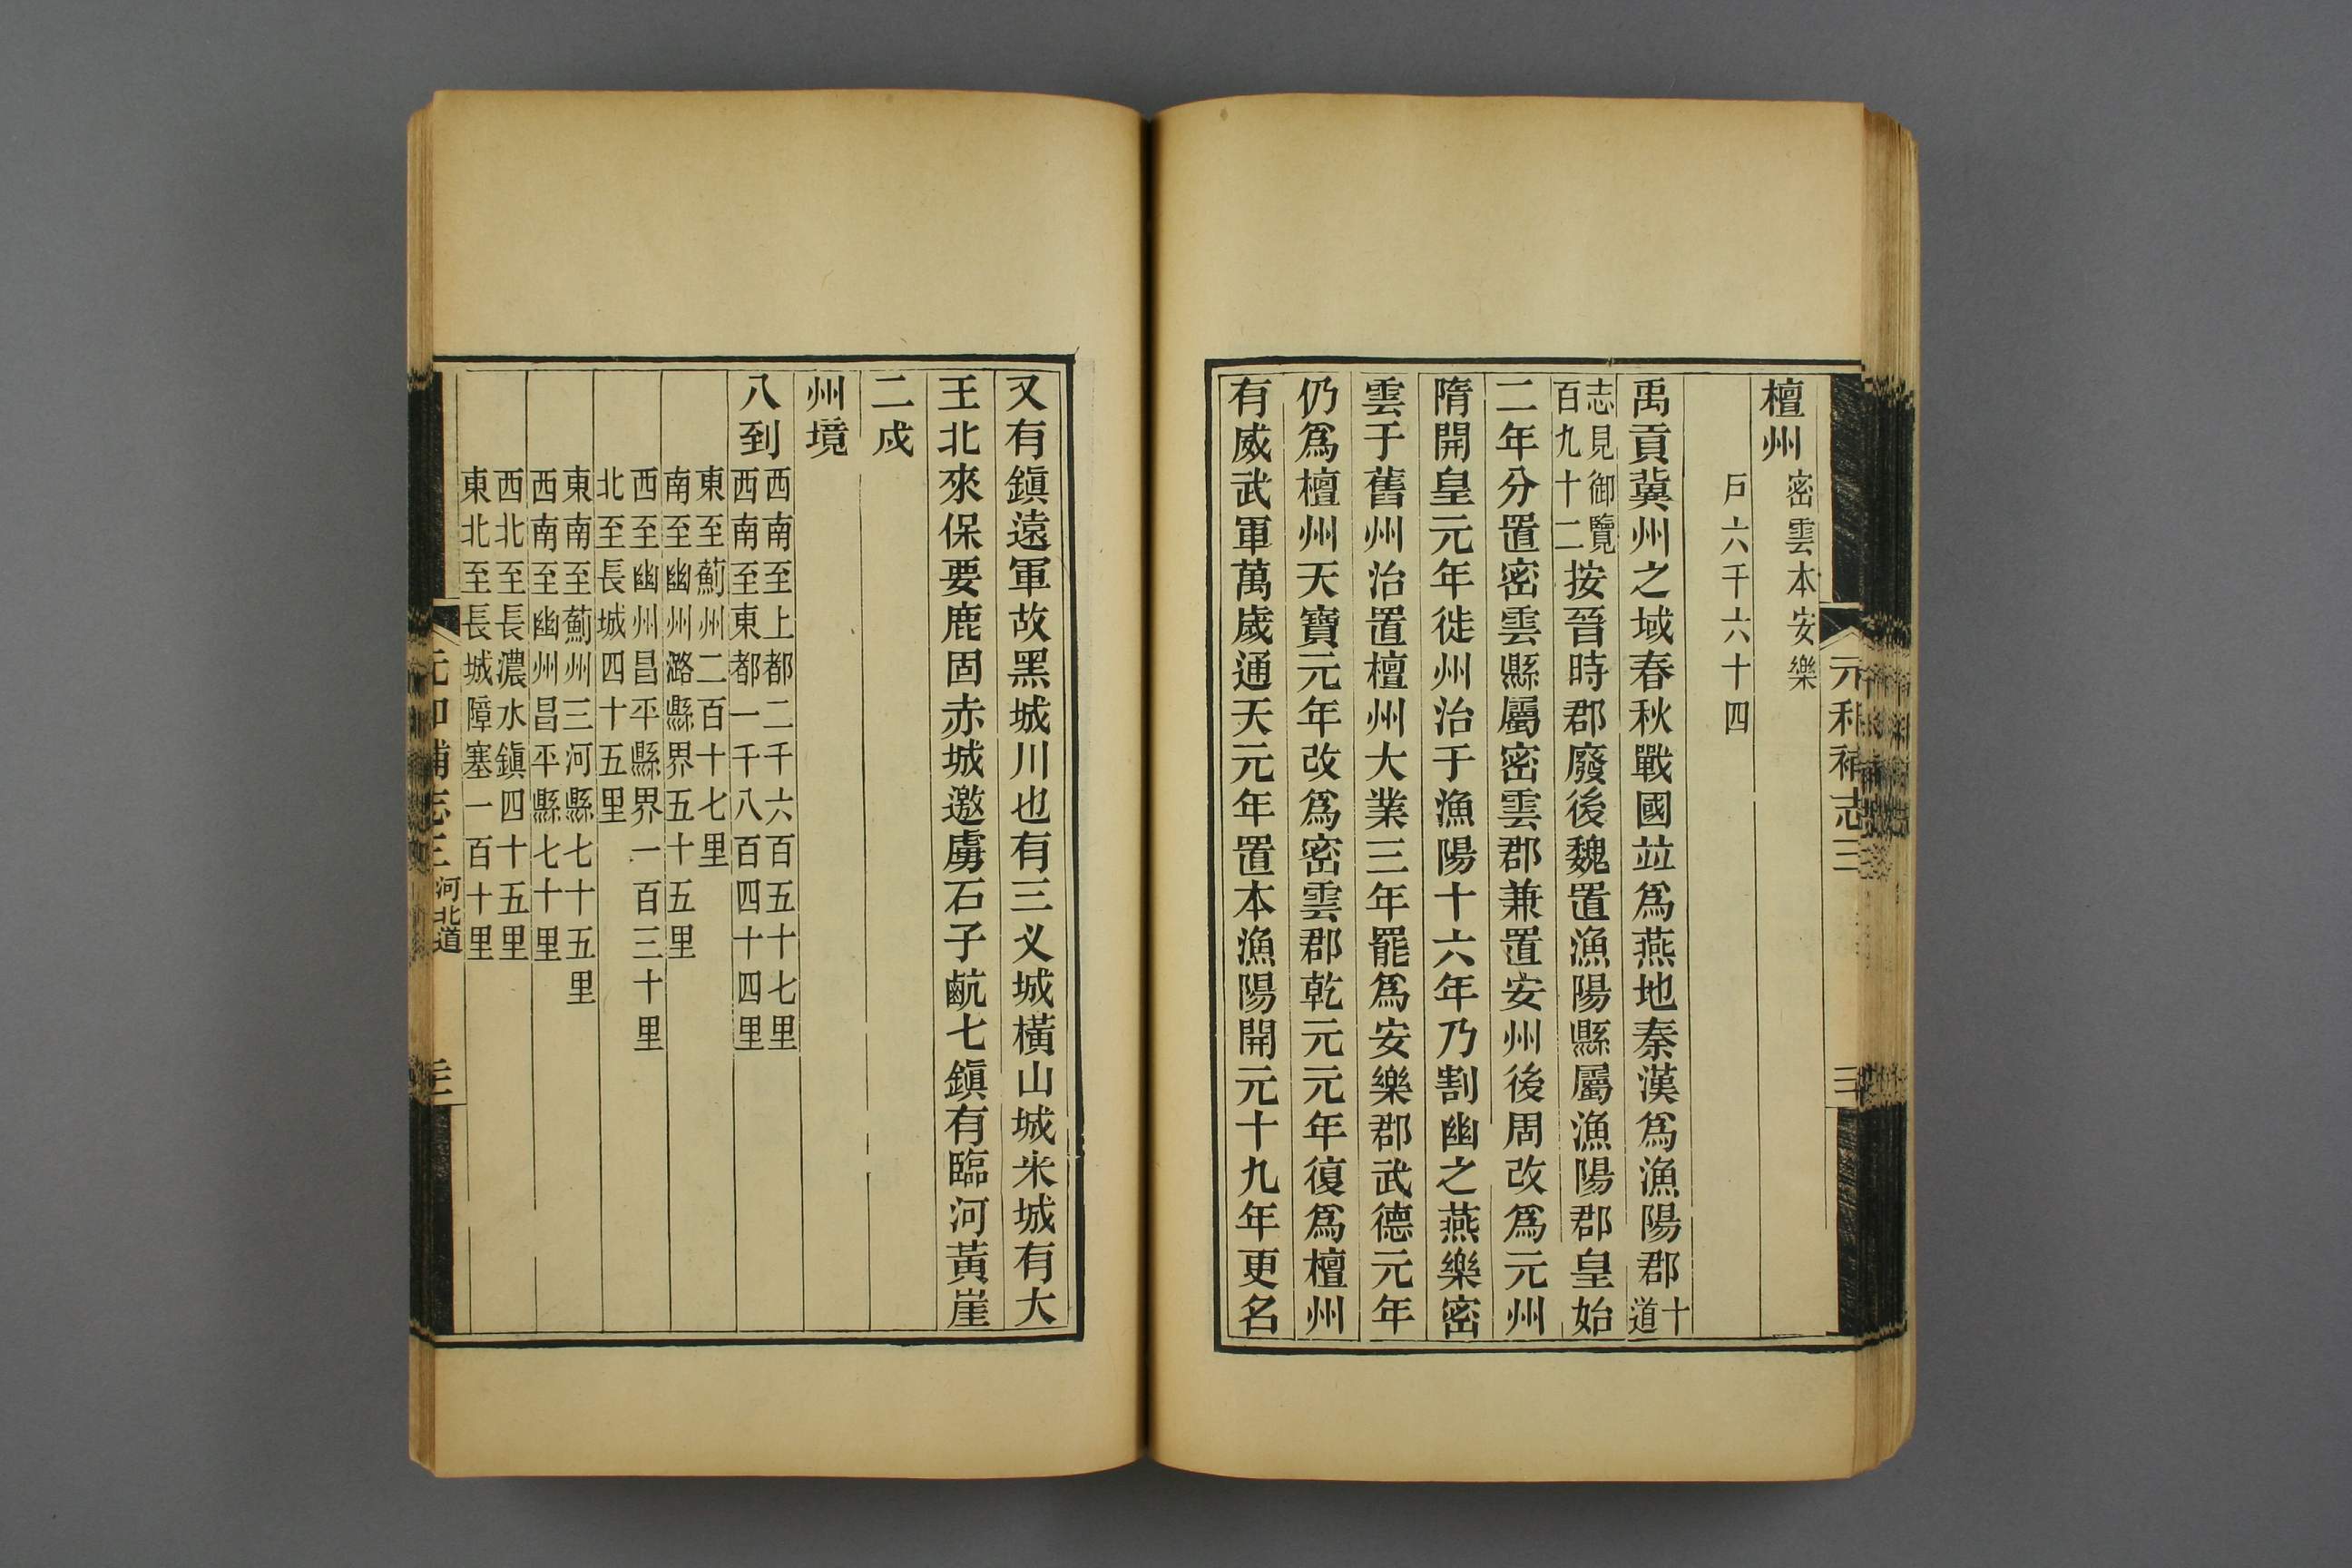 檀州密雲本安樂
戶六千六十四
禹貢冀州之域春秋戰國竝爲燕地秦漢爲漁陽郡十道
志見御覽百九十二按晉時郡廢後魏置漁陽縣屬漁陽郡皇始
二年分置密雲縣屬密雲郡兼置安州後周改爲元州
隋開皇元年徙州治于漁陽十六年乃割幽之燕樂密
雲于舊州治置檀州大業三年罷爲安樂郡武德元年
仍爲檀州天寶元年改爲密雲郡乾元元年復爲檀州
有威武軍萬歲通天元年置本漁陽開元十九年更名
又有鎭遠軍故黑城川也有三义城橫山城米城有大
王北來保要鹿固赤城邀虜石子䴚七鎭有臨河黃崖
二戍
州境
八到西南至上都二千六百五十七里
西南至東都一千八百四十四里
東至薊州二百十七里
南至幽州潞縣界五十五里
西至幽州昌平縣界一百三十里
北至長城四十五里
東南至薊州三河縣七十五里
西南至幽州昌平縣七十里
西北至長濃水鎭四十五里
東北至長城障塞一百十里
元和補志三
河北道